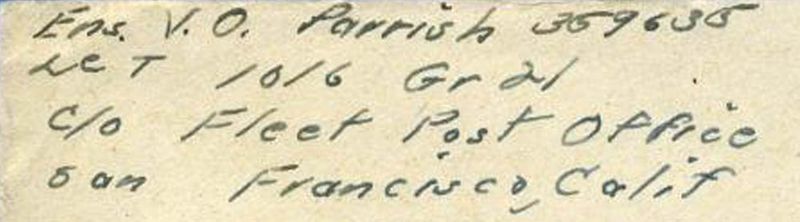 Ens. V. O. Parrish 359635
LCT 1016 Gr 21
c/o Fleet Post Office
San Francisco, Calif